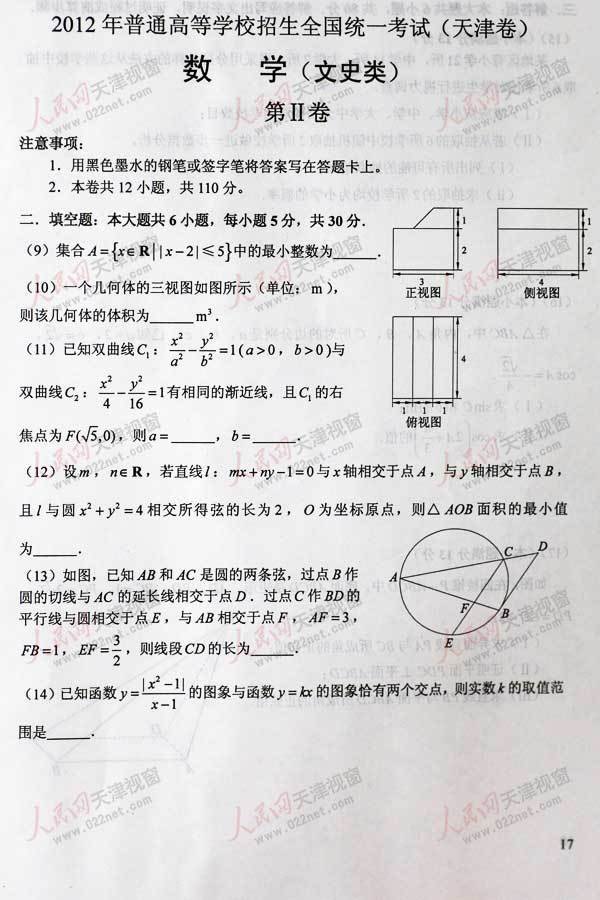 2012年普通高等学校招生全国统一考试（天津卷）
数 学（文史类）
第Ⅱ卷
注意事项：
1．用黑色墨水的钢笔或签字笔将答案写在答题卡上。
2．本卷共12小题，共110分。
二．填空题：本大题共6小题，每小题5分，共30分．
（9）集合A={x∈R||x−2|≤5}中的最小整数为______．
（10）一个几何体的三视图如图所示（单位：m），
则该几何体的体积为______m³．
（11）已知双曲线C₁：x²/a²−y²/b²=1(a>0，b>0)与
双曲线C₂：x²/4−y²/16=1有相同的渐近线，且C₁的右
焦点为F(√5,0)，则a=______，b=______．
1
2
3
正视图
1
2
4
侧视图
4
1 1 1
俯视图
（12）设m，n∈R，若直线l：mx+ny−1=0与x轴相交于点A，与y轴相交于点B，
且l与圆x²+y²=4相交所得弦的长为2，O为坐标原点，则△AOB面积的最小值
为______．
（13）如图，已知AB和AC是圆的两条弦，过点B作
圆的切线与AC的延长线相交于点D．过点C作BD的
平行线与圆相交于点E，与AB相交于点F，AF=3，
FB=1，EF=3/2，则线段CD的长为______．
A
C
D
F
B
E
（14）已知函数y=|x²−1|/(x−1)的图象与函数y=kx的图象恰有两个交点，则实数k的取值范
围是______．
17
人民网天津视窗
www.022net.com